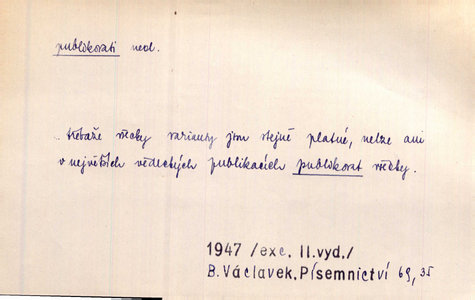 publikovati ned.
.. třebaže všecky varianty jsou stejně platné, nelze ani
v největších vědeckých publikacích publikovat všecky.
1947 /exc. II.vyd./
B.Václavek,Písemnictví 69, 35